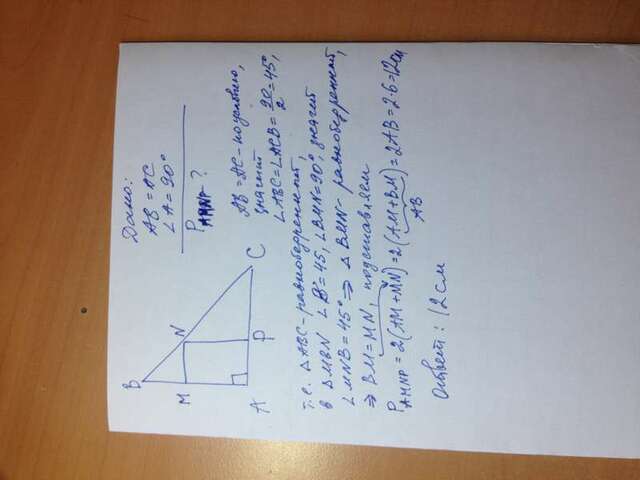 B
M
N
A
P
C
Дано:
AB = AC
∠A = 90°
P AMNP - ?
AB = AC - по условию,
значит
∠ABC = ∠ACB = 90/2 = 45°,
т.е. △ABC - равнобедренный,
в △MBN ∠B = 45, ∠BMN = 90°, значит
∠MNB = 45° ⇒ △BMN - равнобедренный,
⇒ BM = MN, подставляем
P AMNP = 2(AM + MN) = 2(AM + BM) = 2AB = 2·6 = 12см
AB
ответ: 12 см